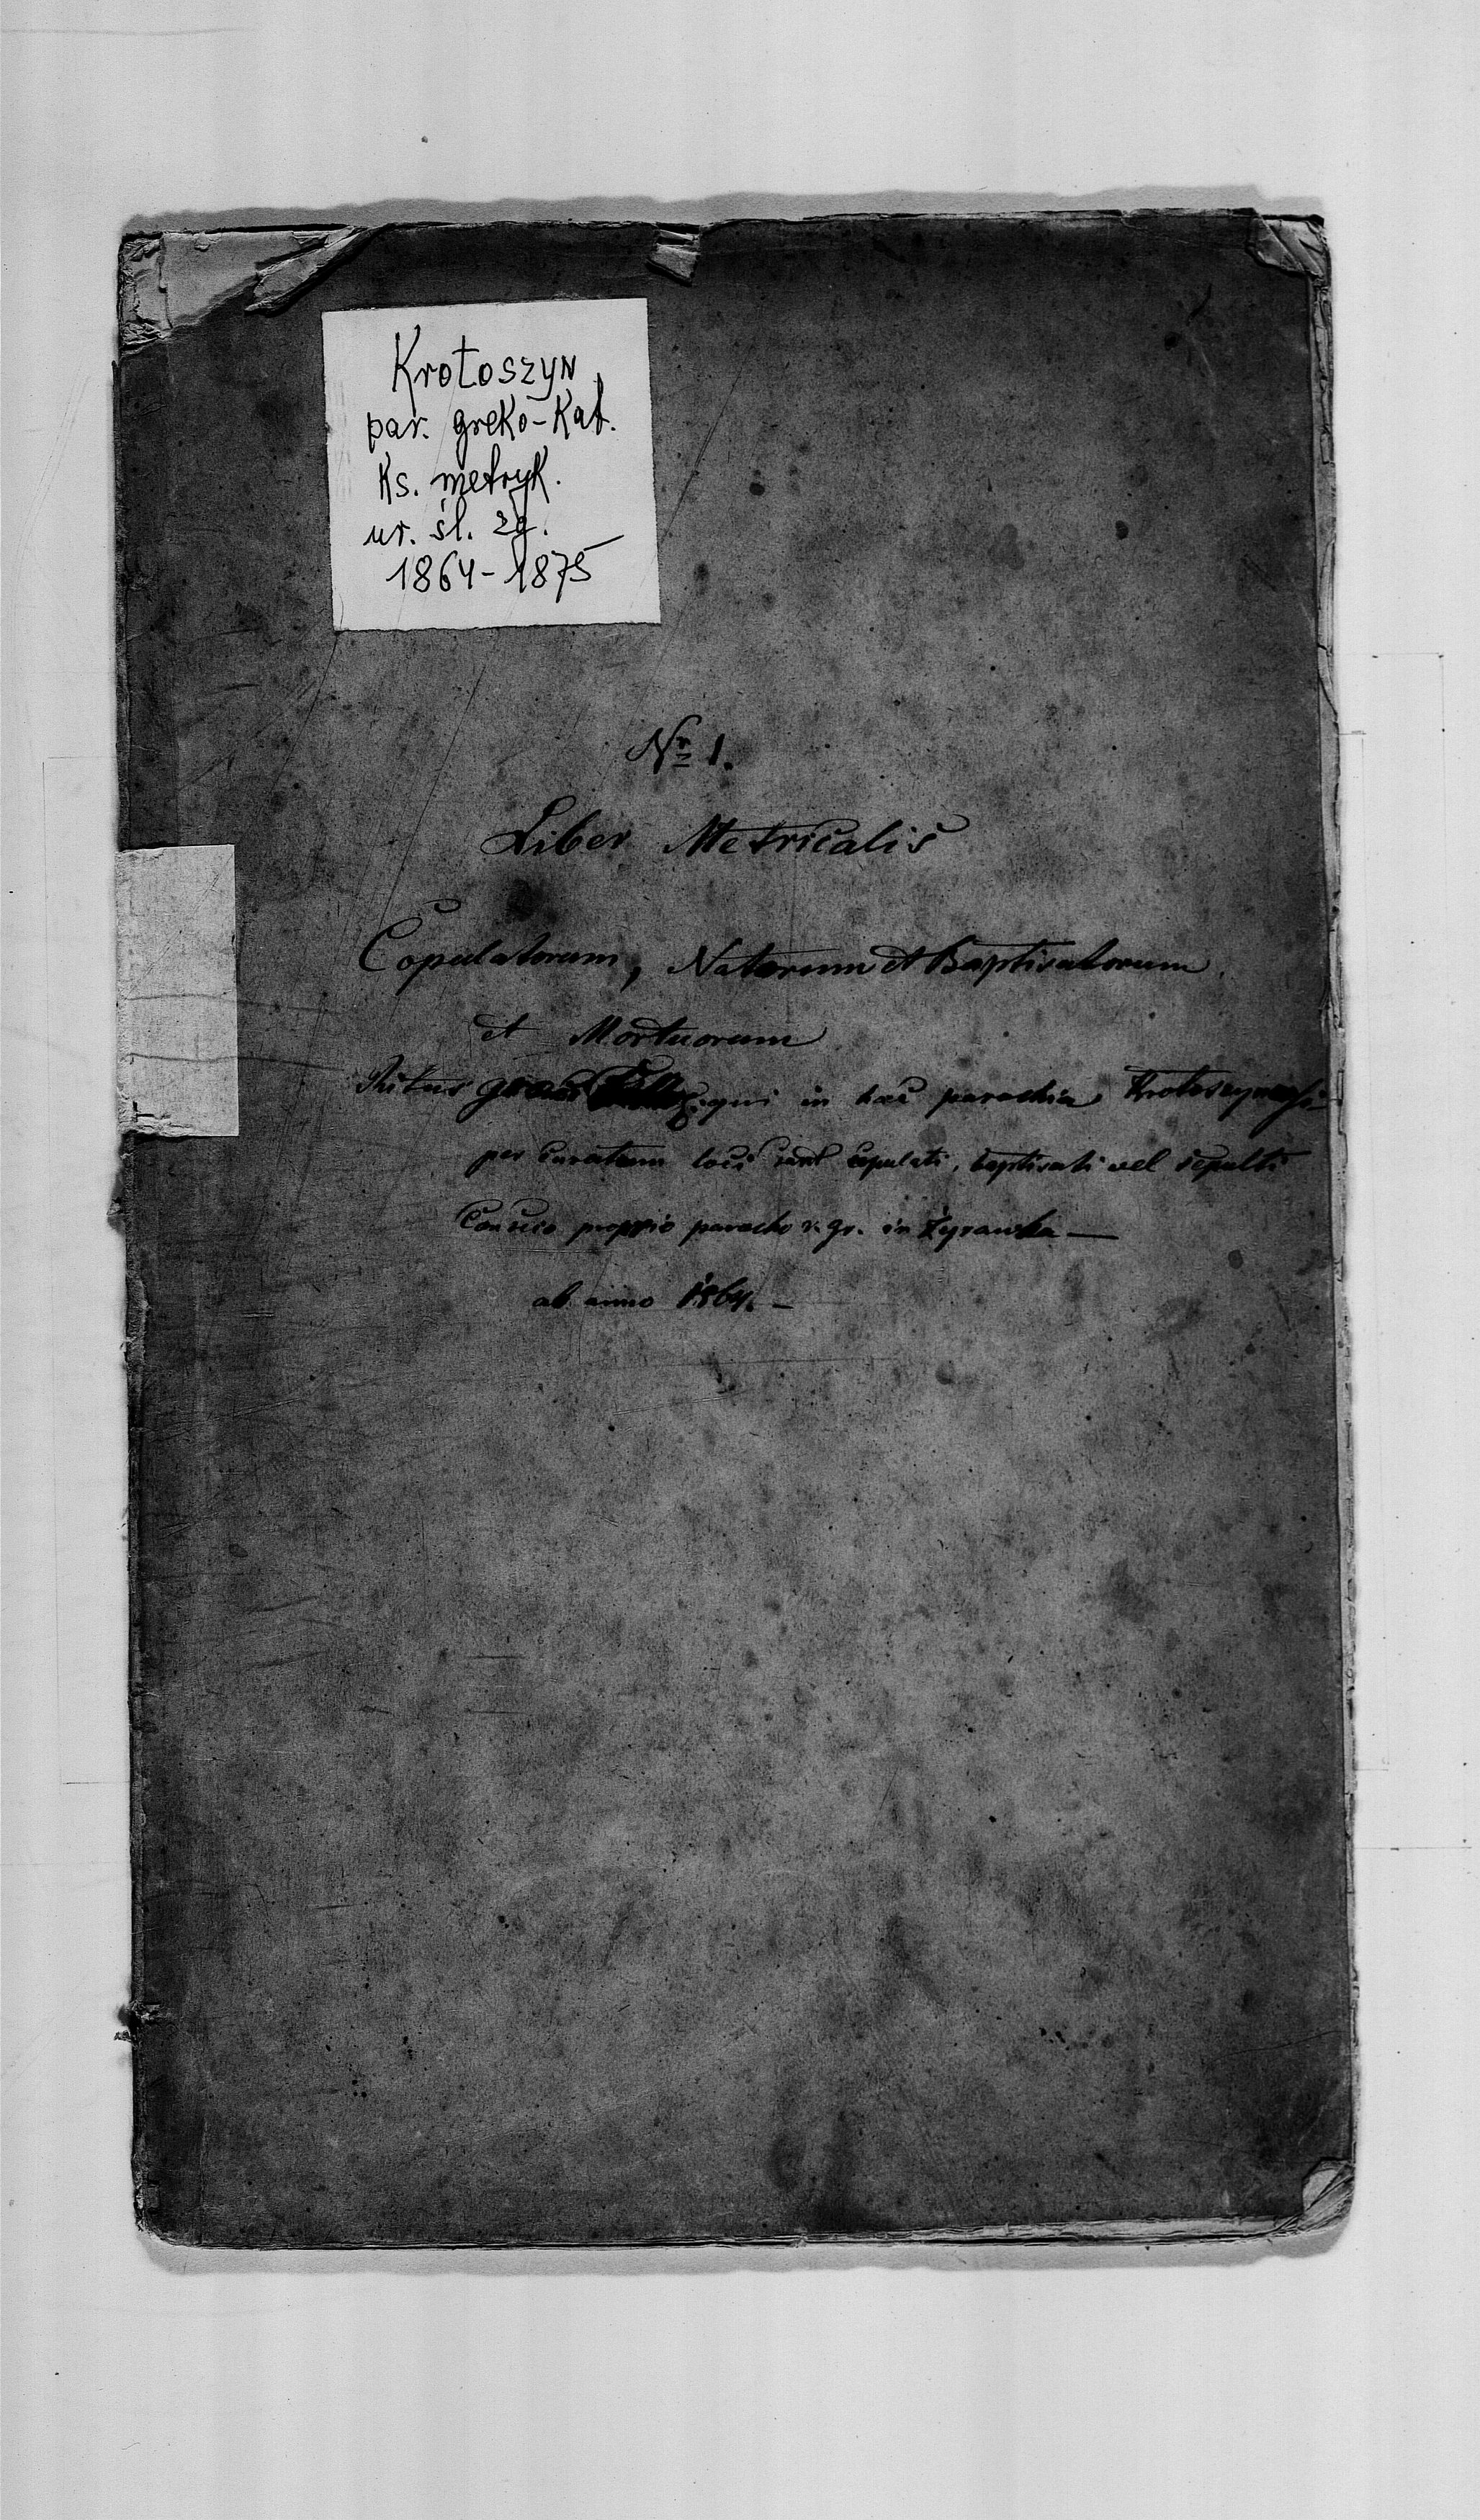 Krotoszyn
par. greko-Kat.
Ks. metryk.
ur. śl. zg.
1864-1875
Nr 1.
Liber Metricalis
Copulatorum, Natorum et Baptisatorum
et Mortuorum
Ritus qui in hac parochia Krotoszynensi
per Curatum loci sunt copulati, baptisati vel sepulti
proprio parocho r. gr. in Żyrawka —
ab anno 1864. —